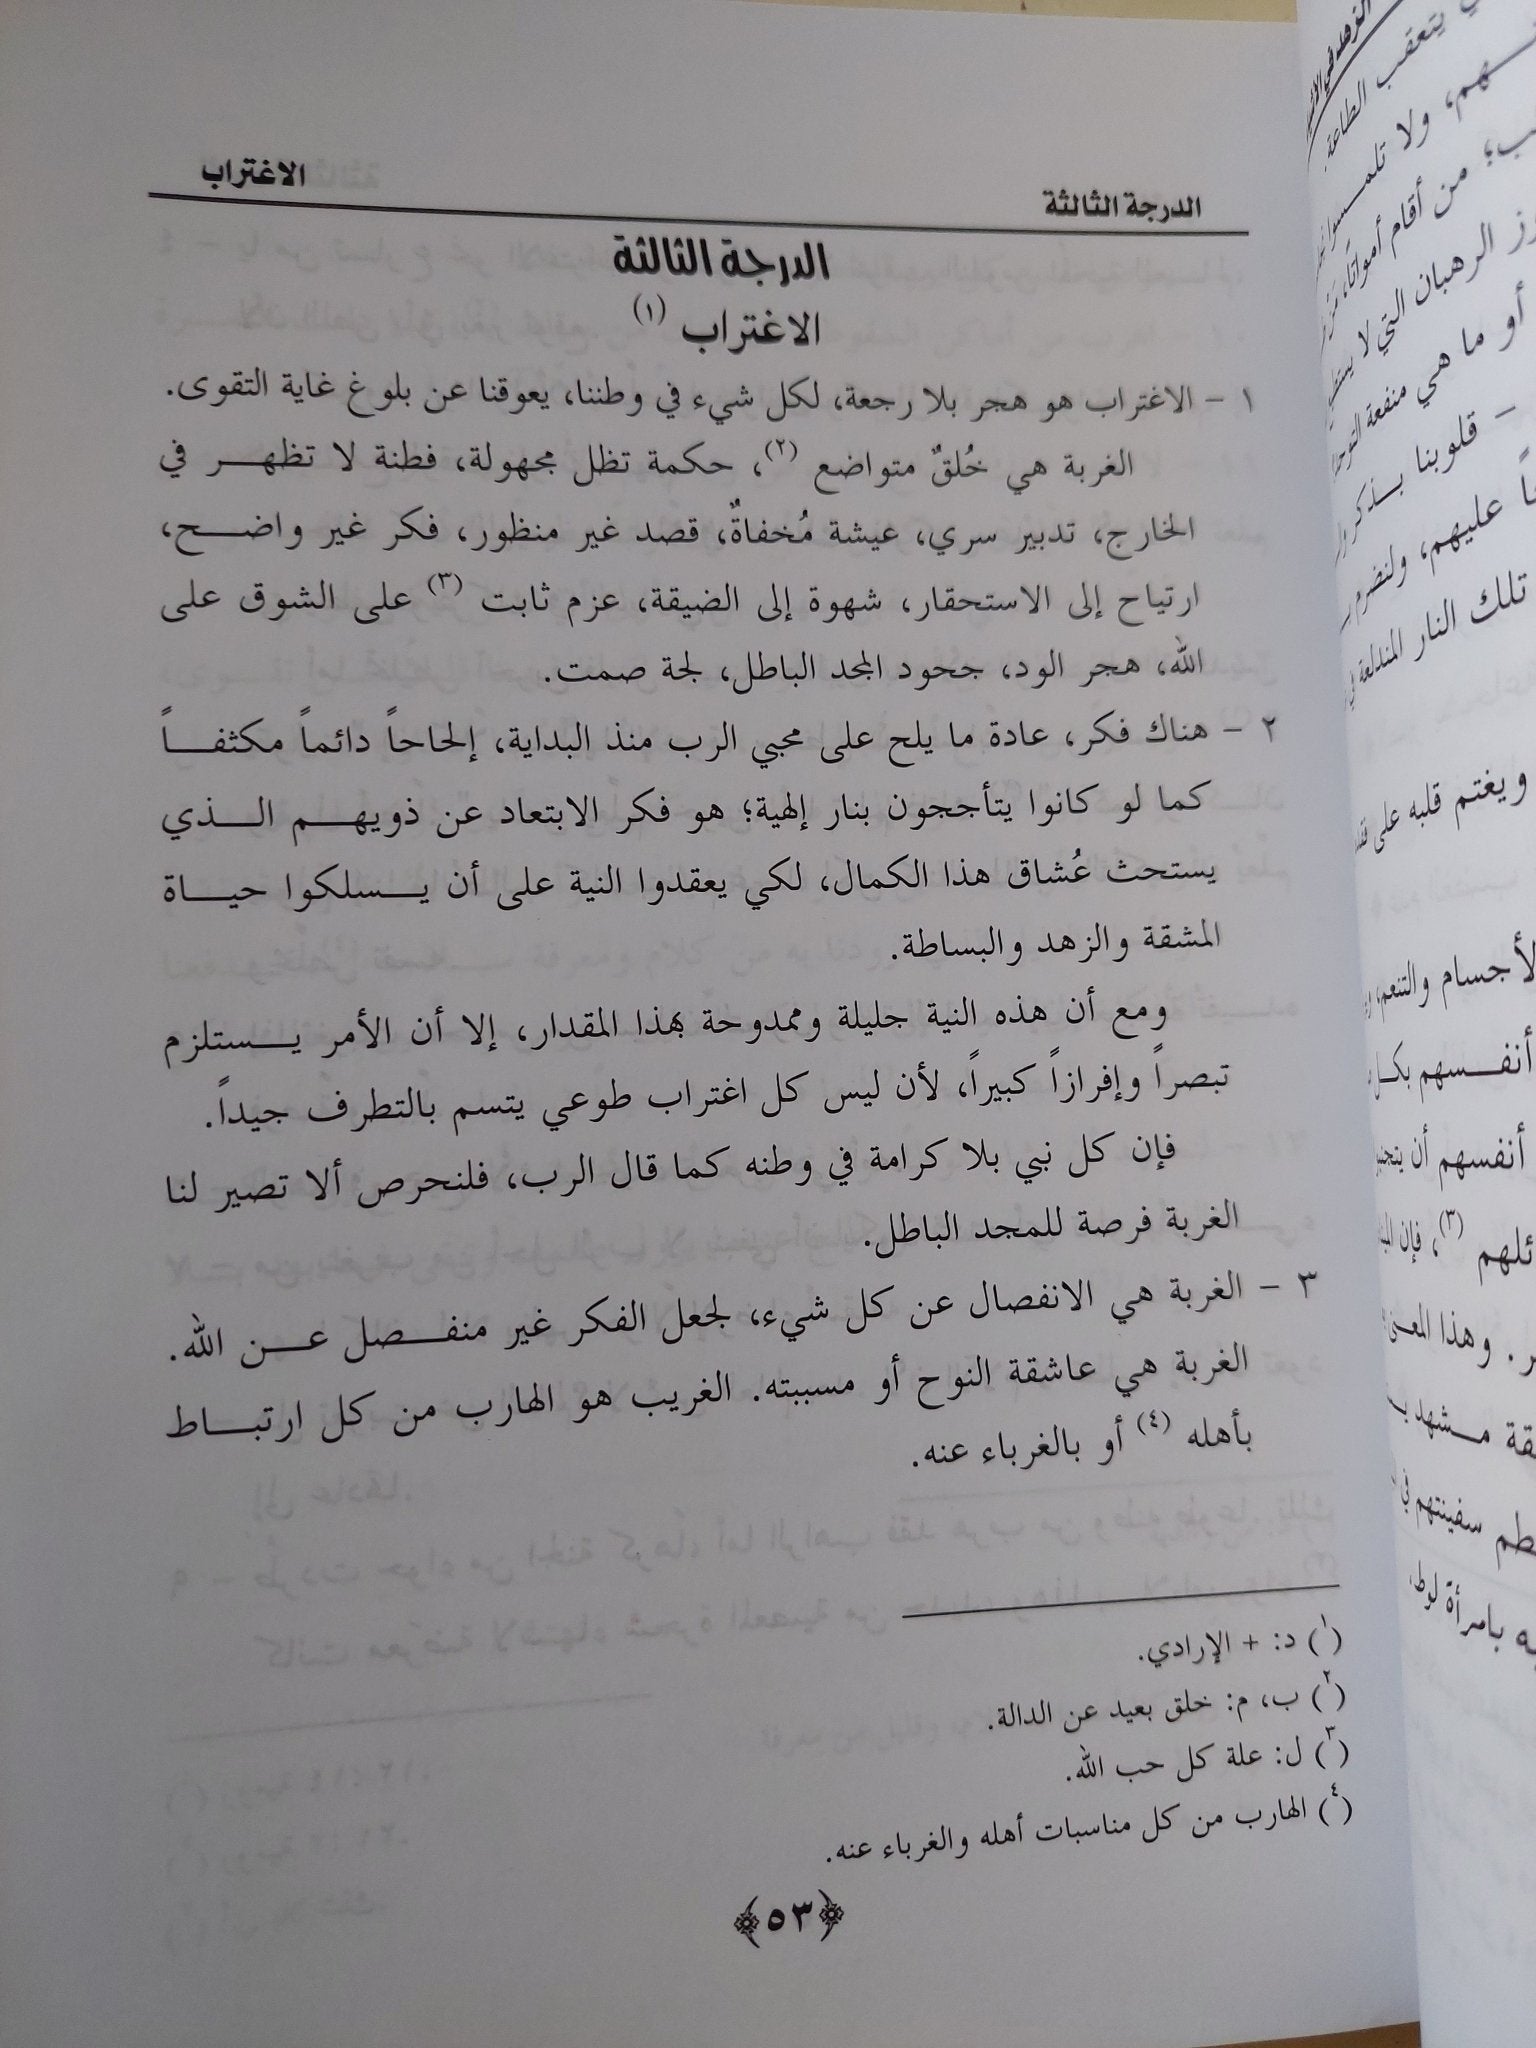 الدرجة الثالثة
الاغتراب
الدرجة الثالثة
الاغتراب (١)
١ - الاغتراب هو هجر بلا رجعة، لكل شيء في وطننا، يعوقنا عن بلوغ غاية التقوى.
الغربة هي خُلقٌ متواضع (٢)، حكمة تظل مجهولة، فطنة لا تظهر في
الخارج، تدبير سري، عيشة مُخفاةٌ، قصد غير منظور، فكر غير واضح،
ارتياح إلى الاستحقار، شهوة إلى الضيقة، عزم ثابت (٣) على الشوق على
الله، هجر الود، جحود المجد الباطل، لجة صمت.
٢ - هناك فكر، عادة ما يلح على محبي الرب منذ البداية، إلحاحاً دائماً مكثفاً
كما لو كانوا يتأججون بنار إلهية؛ هو فكر الابتعاد عن ذويهم الذي
يستحث عُشاق هذا الكمال، لكي يعقدوا النية على أن يسلكوا حياة
المشقة والزهد والبساطة.
ومع أن هذه النية جليلة وممدوحة بهذا المقدار، إلا أن الأمر يستلزم
تبصراً وإفرازاً كبيراً، لأن ليس كل اغتراب طوعي يتسم بالتطرف جيداً.
فإن كل نبي بلا كرامة في وطنه كما قال الرب، فلنحرص ألا تصير لنا
الغربة فرصة للمجد الباطل.
٣ - الغربة هي الانفصال عن كل شيء، لجعل الفكر غير منفصل عن الله.
الغربة هي عاشقة النوح أو مسببته. الغريب هو الهارب من كل ارتباط
بأهله (٤) أو بالغرباء عنه.
(١) د: + الإرادي.
(٢) ب، م: خلق بعيد عن الدالة.
(٣) ل: علة كل حب الله.
(٤) الهارب من كل مناسبات أهله والغرباء عنه.
﴿٥٣﴾
يتعقب الطاعة
ولا
من أقام أمواتا،
الرهبان التي لا
أو ما هي منفعة
- قلوبنا
عليهم، ولنضرم
تلك النار المندلعة
ويغتم قلبه على
والتنعم،
أنفسهم بكل
أنفسهم أن
(٣)، فإن
وهذا المعنى
مشهد
سفينتهم في
بامرأة لوط